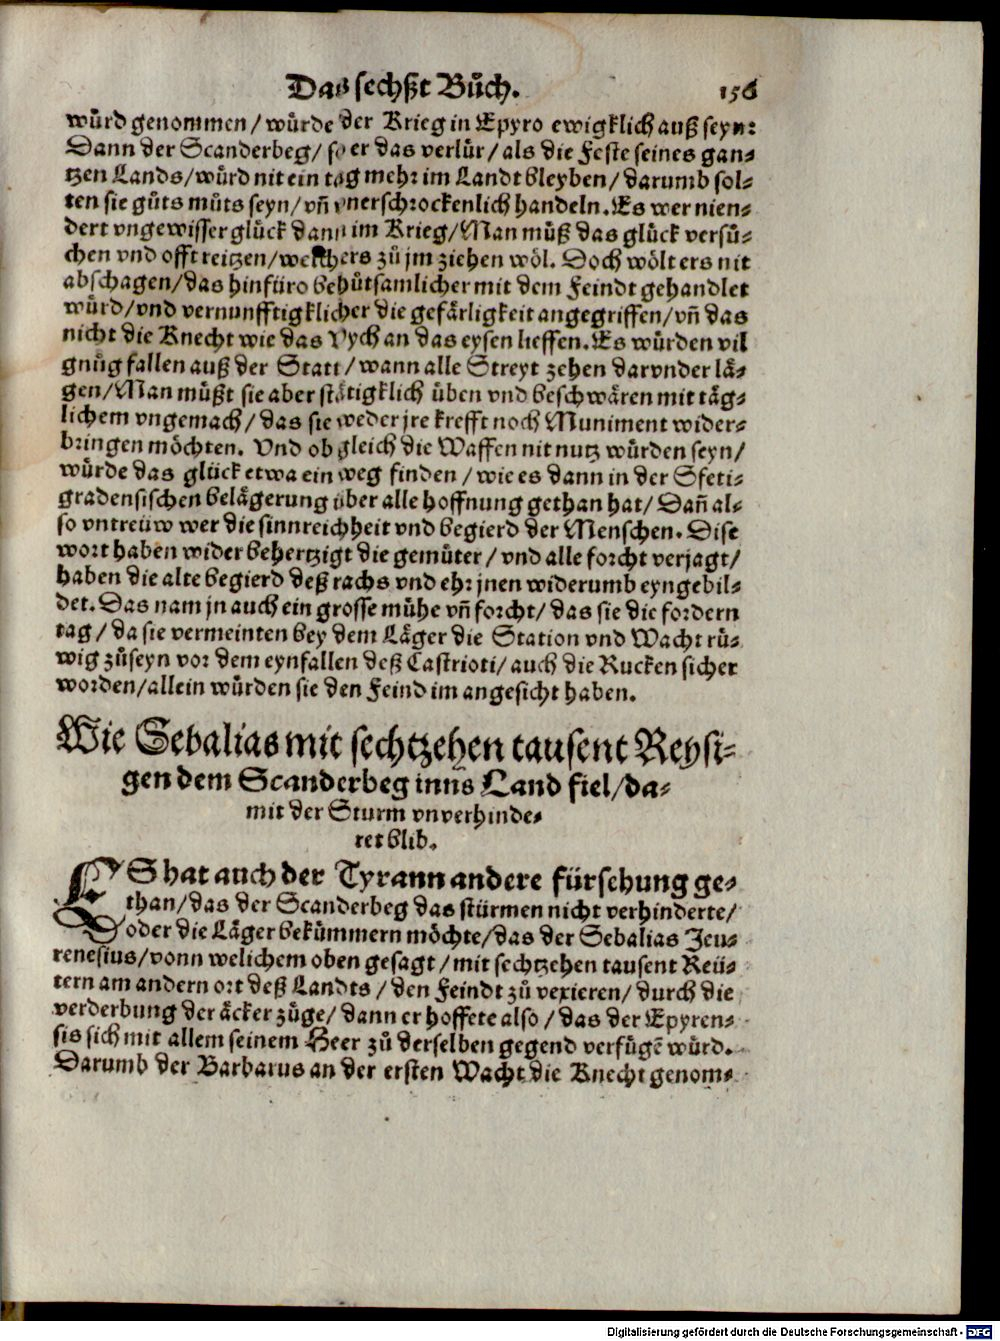 Das sechßt Bůch. 156
würd genommen / würde der Krieg in Epyro ewigklich auß seyn:
Dann der Scanderbeg / so er das verlür / als die Feste seines gan⸗
tzen Lands / würd nit ein tag mehr im Landt bleyben / darumb sol⸗
ten sie gůts můts seyn / vñ vnerschrockenlich handeln. Es wer nien⸗
dert vngewisser glück dann im Krieg / Man můß das glück versů⸗
chen vnd offt reitzen / welchers zů jm ziehen wöl. Doch wölt ers nit
abschagen / das hinfüro behůtsamlicher mit dem Feindt gehandlet
würd / vnd vernunfftigklicher die gefärligkeit angegriffen / vñ das
nicht die Knecht wie das Vych an das eysen lieffen. Es würden vil
gnůg fallen auß der Statt / wann alle Streyt zehen darvnder lä⸗
gen / Man můßt sie aber stätigklich üben vnd beschwären mit täg⸗
lichem vngemach / das sie weder jre krefft noch Muniment wider⸗
bringen möchten. Vnd ob gleich die Waffen nit nutz würden seyn /
würde das glück etwa ein weg finden / wie es dann in der Sfeti⸗
gradensischen belägerung über alle hoffnung gethan hat / Dañ al⸗
so vntreüw wer die sinnreichheit vnd begierd der Menschen. Dise
wort haben wider behertzigt die gemüter / vnd alle forcht verjagt /
haben die alte begierd deß rachs vnd ehr jnen widerumb eyngebil⸗
det. Das nam jn auch ein grosse mühe vñ forcht / das sie die fordern
tag / da sie vermeinten bey dem Läger die Station vnd Wacht rü⸗
wig zůseyn vor dem eynfallen deß Castrioti / auch die Rucken sicher
worden / allein würden sie den Feind im angesicht haben.
Wie Sebalias mit sechtzehen tausent Reysi⸗
gen dem Scanderbeg inns Land fiel / da⸗
mit der Sturm vnverhinde⸗
ret blib.
ES hat auch der Tyrann andere fürsehung ge⸗
than / das der Scanderbeg das stürmen nicht verhinderte /
oder die Läger bekümmern möchte / das der Sebalias Jeu⸗
renesius / vonn welichem oben gesagt / mit sechtzehen tausent Reü⸗
tern am andern ort deß Landts / den Feindt zů vexieren / durch die
verderbung der äcker züge / dann er hoffete also / das der Epyren⸗
sis sich mit allem seinem Heer zů derselben gegend verfůgē würd.
Darumb der Barbarus an der ersten Wacht die Knecht genom⸗
Digitalisierung gefördert durch die Deutsche Forschungsgemeinschaft - DFG